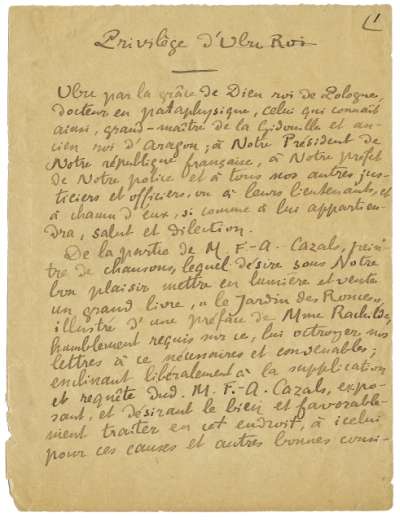 1
Privilège d'Ubu Roi
Ubu par la grâce de Dieu roi de Pologne,
docteur en pataphysique, celui qui connaît
ainsi, grand-maître de la Gidouille et an-
cien roi d'Aragon ; à Notre Président de
Notre république française, à Notre préfet
de Notre police et à tous nos autres jus-
ticiers et officiers, ou à leurs lieutenants, et
à chacun d'eux, si comme à lui appartien-
dra, salut et dilection.
De la partie de M. F.-A. Cazals, pein-
tre de chansons, lequel désire sous Notre
bon plaisir mettre en lumière et vente
un grand livre, « le Jardin des Ronces,
illustré d'une préface de Mme Rachilde,
humblement requis sur ce, lui octroyer nos
lettres à ce nécessaires et convenables ;
enclinant libéralement à la supplication
et requête dud. M. F.-A. Cazals, expo-
sant, et désirant le bien et favorable-
ment traiter en cet endroit, à icelui
pour ces causes et autres bonnes consi-